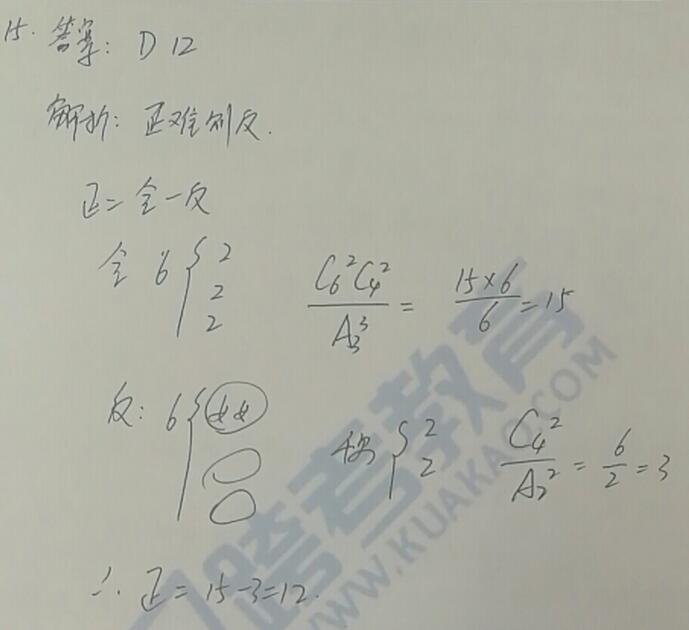 15. 答案: D 12
解析: 正难则反.
正=全一反
全 6 { 2 2 2 C₆²C₄² / A₃³ = 15×6 / 6 = 15
反: 6 { 女女 { 2 2 C₄² / A₂² = 6 / 2 = 3
∴ 正 = 15-3=12.
跨考教育
WWW.KUAKAO.COM